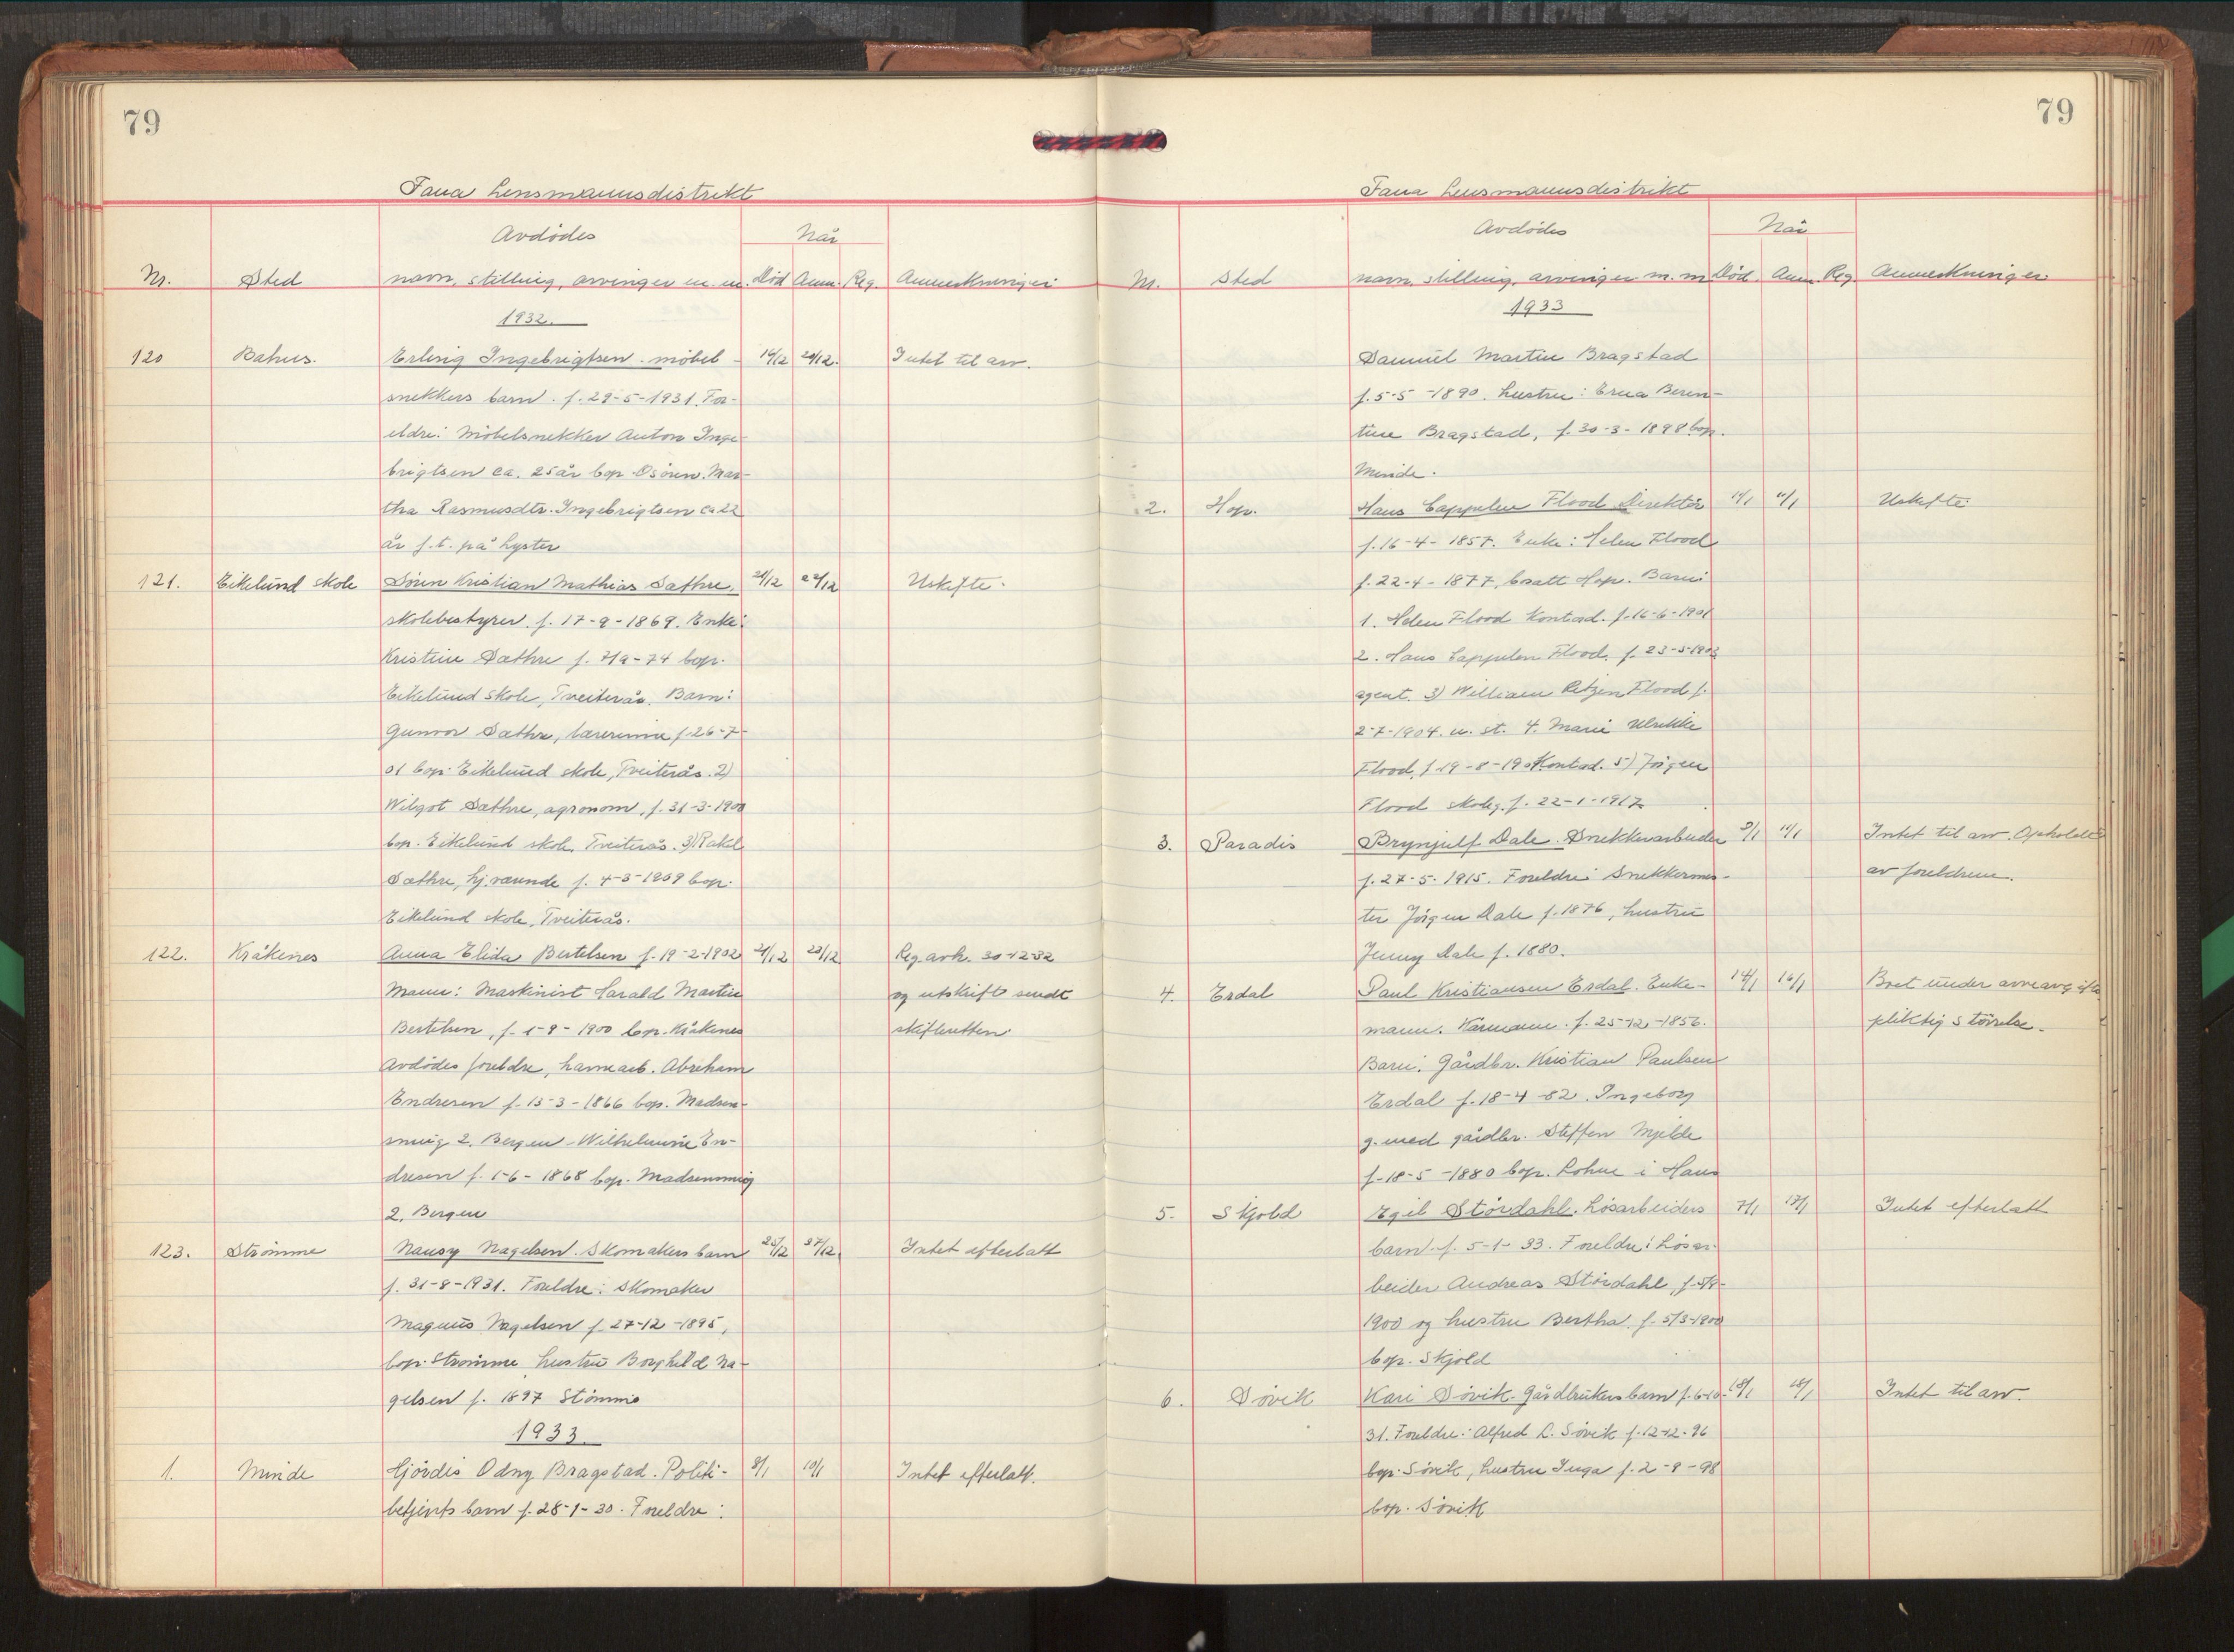 79
Fana Lensmannsdistrikt
Avdödes
Når
Nr. Sted navn, stilling, arvinger m. m. Död Anm. Reg. Anmerkninger
1932.
120 Bahus. Erling Ingebrigtsen. möbel- 24/12. Intet til arv.
snekkers barn. f. 29-5-1931. For-
eldre: Möbelsnekker Anton Inge-
brigtsen ca. 25 år bop. Osören. Mar-
tha Rasmusdtr. Ingebrigtsen ca 22
år f.t. på Lyster
121. Eikelund skole Sören Kristian Mathias Sathre, 21/12 22/12 Uskifte.
skolebestyrer. f. 17-9-1869. Enke:
Kristine Sathre f. 7/9-74 bop.
Eikelund skole, Tveiterås. Barn:
Gunvor Sathre, lærerinne f. 26-7-
01 bop. Eikelund skole, Tveiterås. 2)
Wilgot Sathre, agronom, f. 31-3-1900
bop. Eikelund skole, Tveiterås. 3) Rakel
Sathre, hj. værende f. 4-3-1909 bop.
Eikelund skole, Tveiterås.
122. Kråkenes Anna Elida Bertelsen f. 19-2-1902 21/12 23/12 Reg. avh. 30-12-32
Mann: Maskinist Harald Martin og utskrift sendt
Bertelsen, f. 1-9-1900 bop. Kråkenes skifteretten.
Avdödes foreldre, havnearb. Abraham
Endresen f. 13-3-1866 bop. Madsen-
smug 2. Bergen. Wilhelmine En-
dresen f. 1-6-1868 bop. Madsensmug
2. Bergen
123. Strömme Nansy Nagelsen. Skomakers barn 25/12 27/12. Intet efterlatt
f. 31-8-1931. Foreldre: Skomaker
Magnus Nagelsen f. 27-12-1895,
bop. Strömme, hustru Borghild Na-
gelsen f. 1897 Stömme
1933
1. Minde Hjördis Odny Bragstad. Politi- 8/1 10/1 Intet efterlatt.
betjents barn f. 28-1-30. Foreldre:
79
Fana Lensmannsdistrikt
Avdödes
Når
Nr. Sted navn, stilling, arvinger m. m Död. Anm. Reg. Anmerkninger
1933
Samuel Martin Bragstad
f. 5-5-1890. hustru: Erna Beren-
tine Bragstad, f. 30-3-1898 bop.
Minde.
2. Hop. Hans Cappelen Flood Direktör 11/1 Uskifte
f. 16-4-1857. Enke: Helen Flood
f. 22-4-1877, bosatt Hop. Barn:
1. Helen Flood Kontord. f. 16-6-1901
2. Hans Cappelen Flood. f. 23-5-1902
agent. 3) William Flood f.
2-7-1904. u. st. 4. Marie Ulrikke
Flood, f. 19-8-19 Kontord. 5) Jörgen
Flood skoleg. f. 22-1-1917
3. Paradis Brynjulf Dale. Snekkerarbeider 9/1 11/1 Intet til arv. Opholdt
f. 27-5-1915. Foreldre: Snekkermes- av foreldrene.
ter Jörgen Dale f. 1876, hustru
Jenny Dale f. 1880.
4. Erdal Paul Kristiansen Erdal. Enke- 14/1 16/1 Boet under arveavgifts
mann. Kårmann. f. 25-12-1856. pliktig störrelse.
Barn: Gårdbr. Kristian Paulsen
Erdal f. 18-4-82. Ingeborg
g. med gårdbr. Steffen Mjelde
f. 18-5-1880 bop. Lohne i Haus
5. Skjold Egil Stördahl. Lösarbeiders 7/1 17/1 Intet efterlatt
barn f. 5-1-33. Foreldre: Lösar-
beider Andreas Stördahl, f.
1900 og hustru Bertha f. 5/3-1900
bop. Skjold
6. Sövik Kari Sövik. Gårdbrukers barn f. 6-10- 18/1 18/1 Intet til arv.
31. Foreldre: Alfred L. Sövik f. 12-12-96
bop. Sövik, hustru Inga f. 2-9-98
bop. Sövik